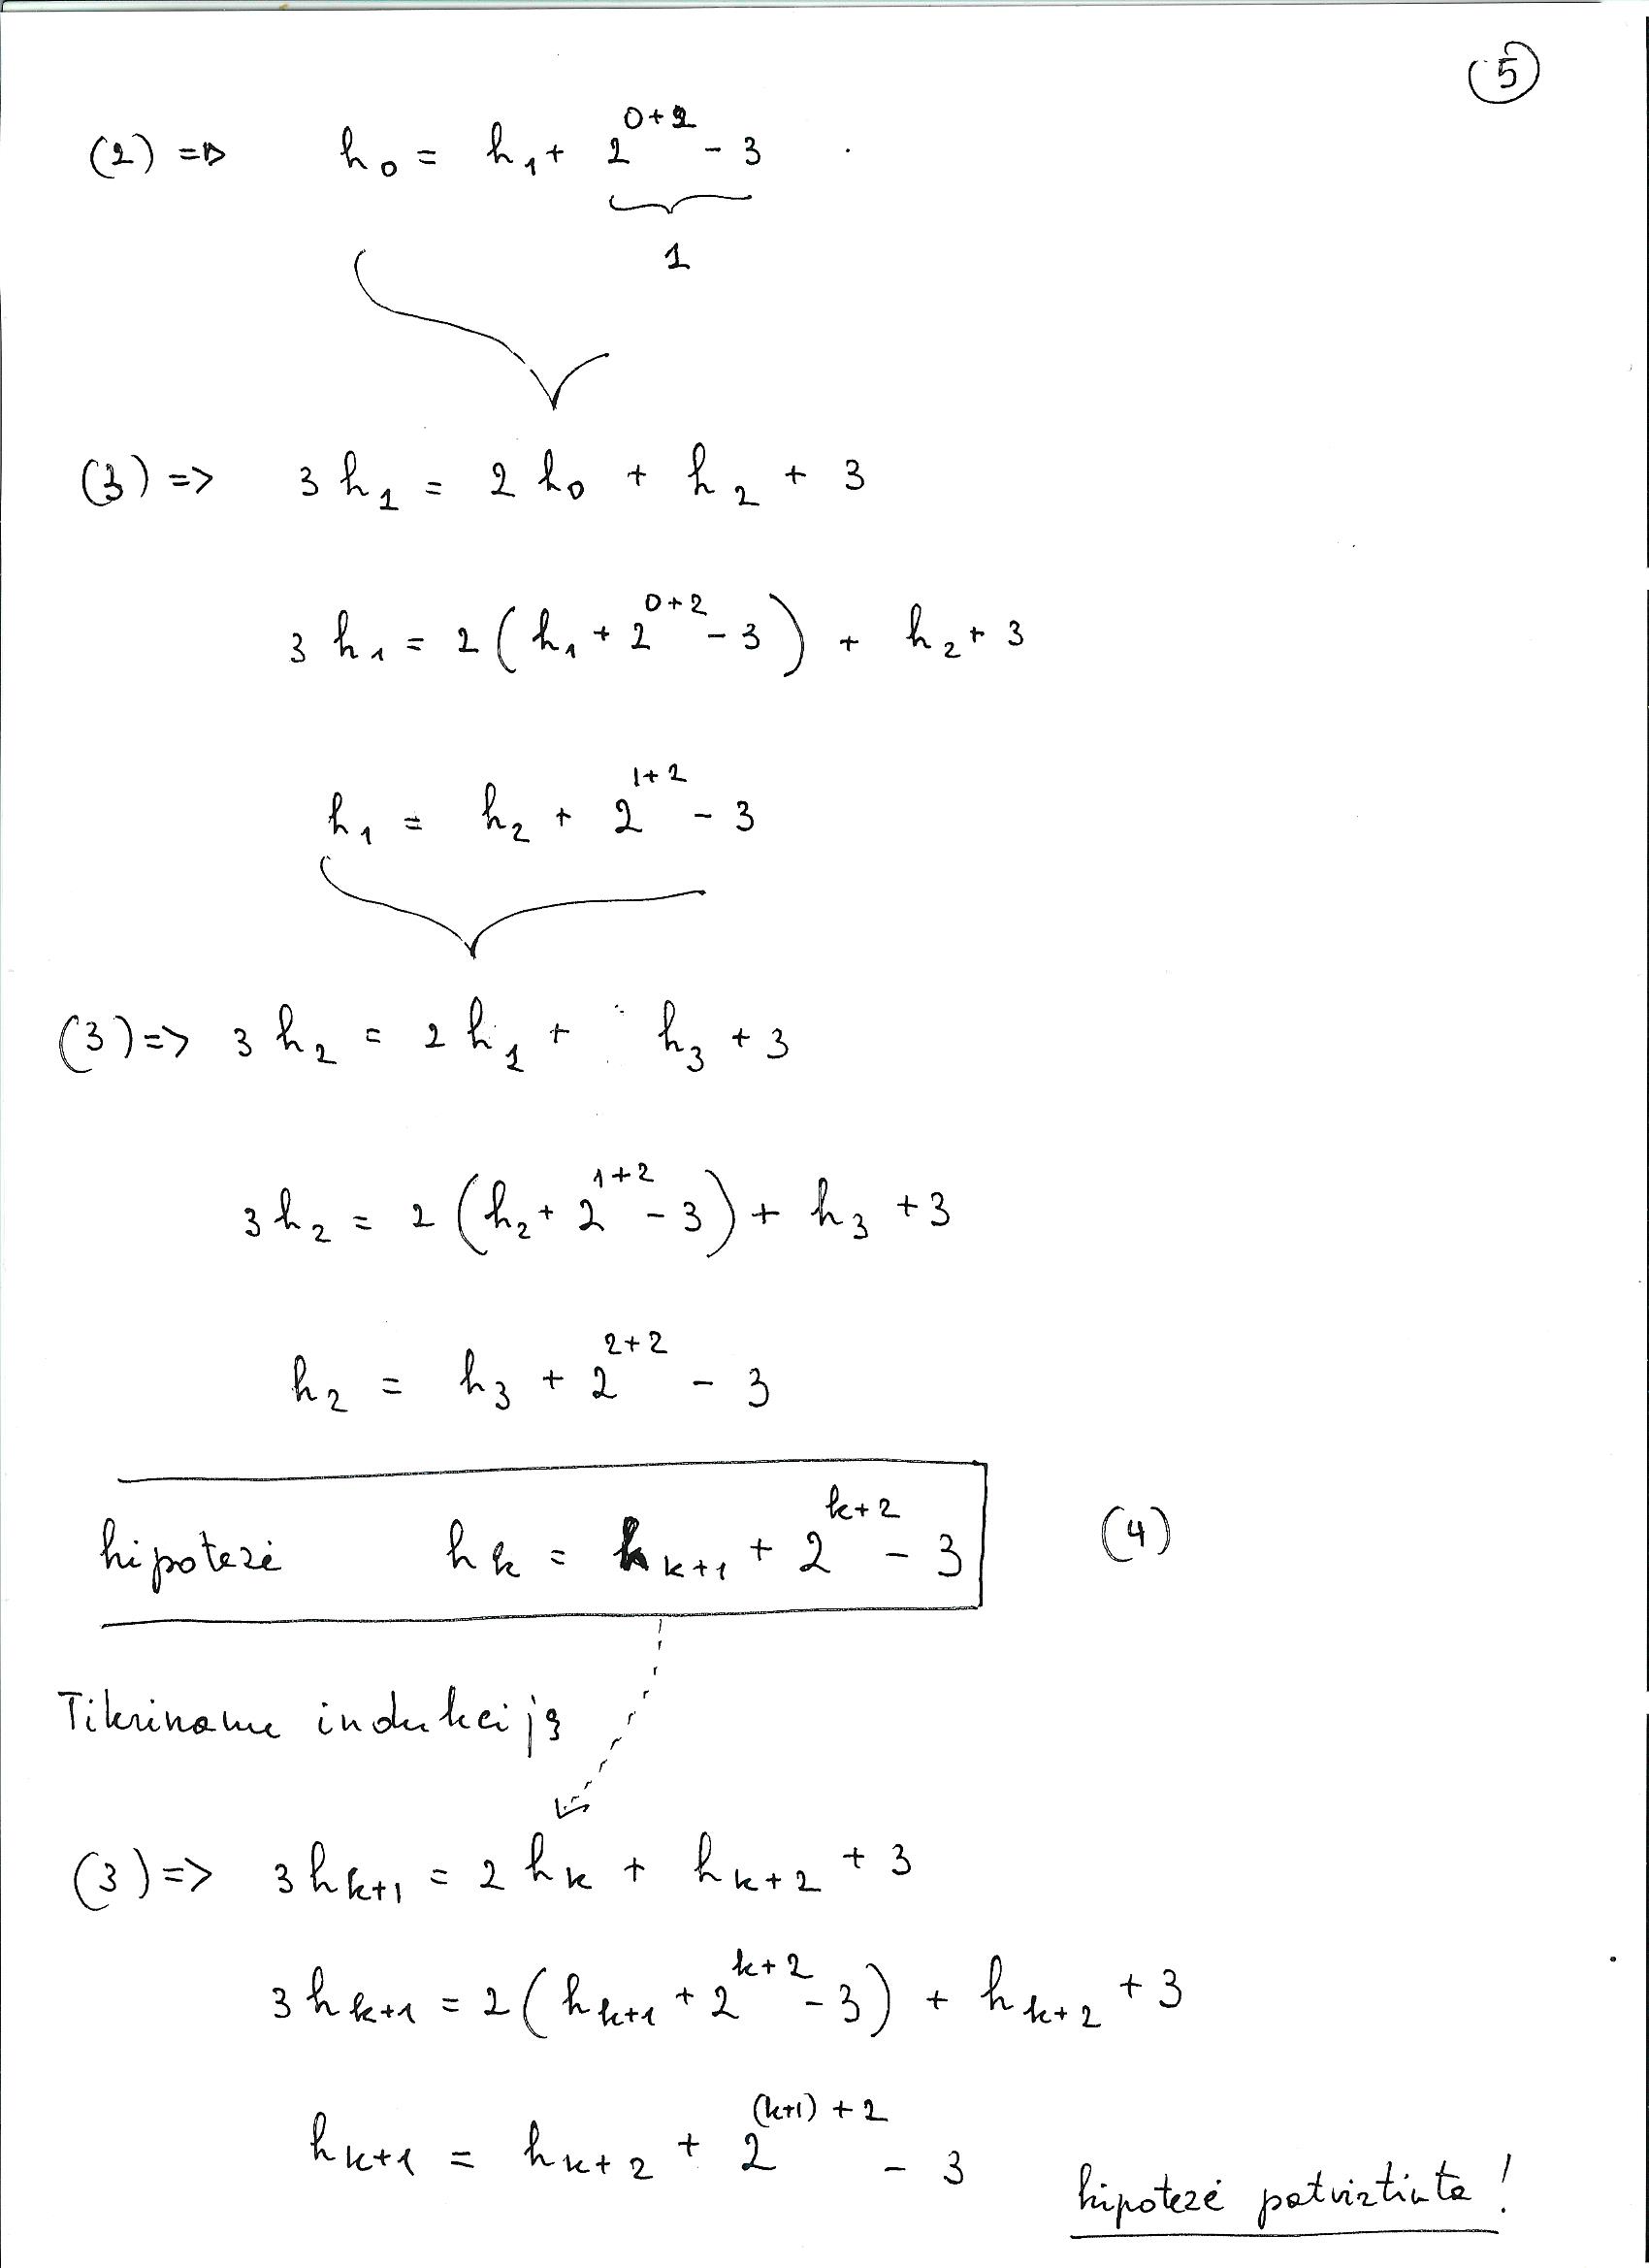 (5)
(2) => h₀ = h₁ + 2^(0+2) - 3
1
(3) => 3h₁ = 2h₀ + h₂ + 3
3h₁ = 2(h₁ + 2^(0+2) - 3) + h₂ + 3
h₁ = h₂ + 2^(1+2) - 3
(3) => 3h₂ = 2h₁ + h₃ + 3
3h₂ = 2(h₂ + 2^(1+2) - 3) + h₃ + 3
h₂ = h₃ + 2^(2+2) - 3
hipotezė h_k = h_(k+1) + 2^(k+2) - 3 (4)
Tikriname indukciją
(3) => 3h_(k+1) = 2h_k + h_(k+2) + 3
3h_(k+1) = 2(h_(k+1) + 2^(k+2) - 3) + h_(k+2) + 3
h_(k+1) = h_(k+2) + 2^((k+1)+2) - 3
hipotezė patvirtinta!